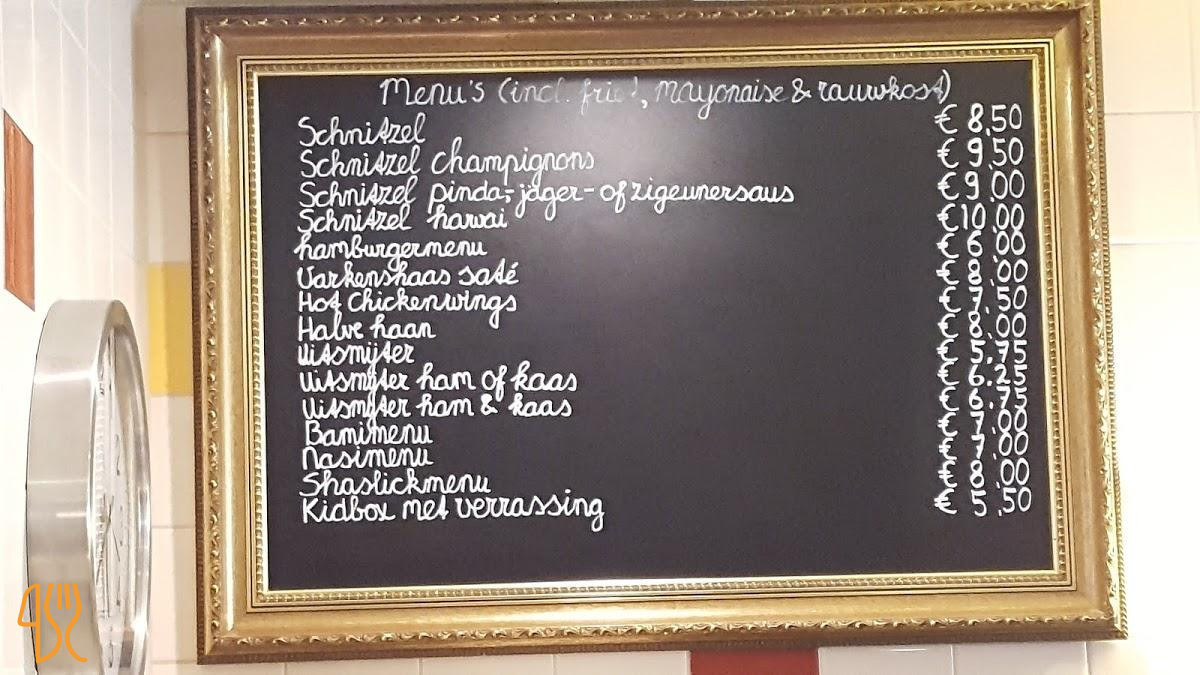 Menu's (incl. friet, mayonaise & rauwkost)
Schnitzel € 8,50
Schnitzel champignons € 9,50
Schnitzel pinda-, jager- of zigeunersaus € 9,00
Schnitzel hawai € 10,00
hamburgermenu € 6,00
Varkenshaas saté € 8,00
Hot chickenwings € 7,50
Halve haan € 8,00
Uitsmijter € 5,75
Uitsmijter ham of kaas € 6,25
Uitsmijter ham & kaas € 6,75
Bamimenu € 7,00
Nasimenu € 7,00
Shaslickmenu € 8,00
Kidbox met verrassing € 5,50